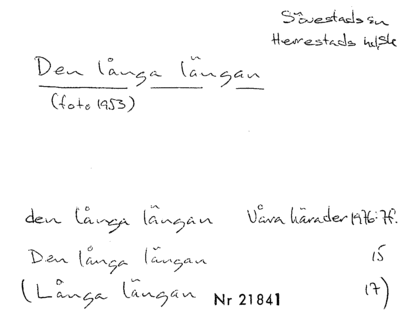 Sövestads sn
Herrestads hd, Sk
Den långa längan
(foto 1953)
den långa längan Våra härader 1976:7f.
Den långa längan 15
(Långa längan Nr 21841 17)